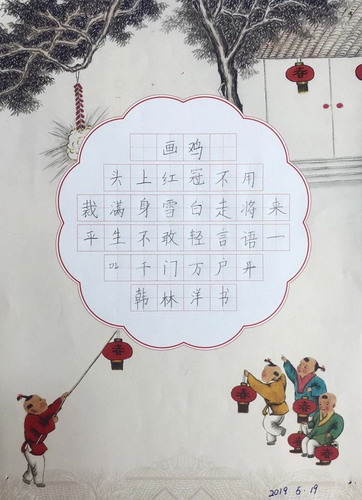 春
画鸡
头上红冠不用
裁满身雪白走将来
平生不敢轻言语一
叫千门万户开
韩林洋书
春
春
春
2019 5.19